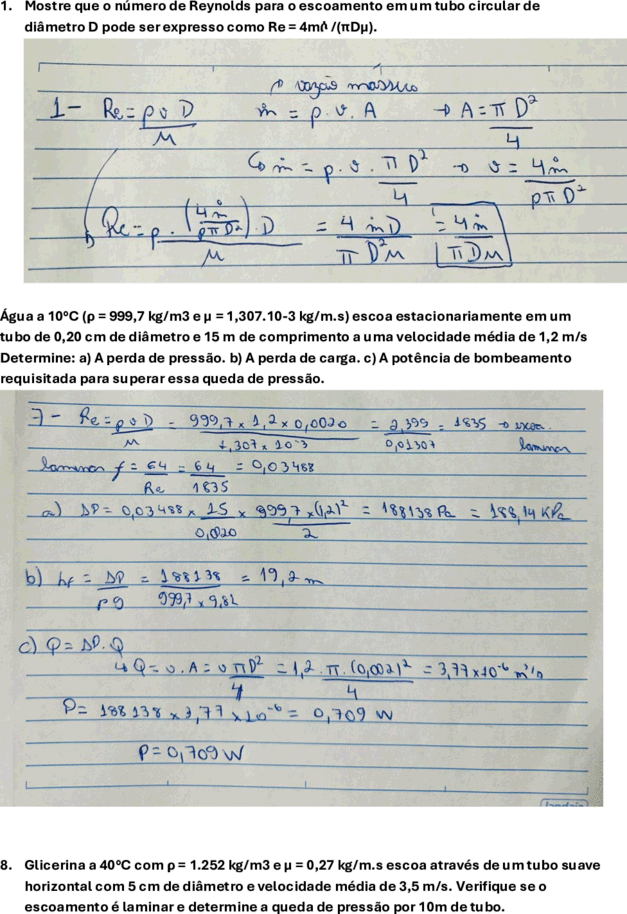 1. Mostre que o número de Reynolds para o escoamento em um tubo circular de
diâmetro D pode ser expresso como Re = 4ṁ /(πDμ).
↗ vazão mássica
1 - Re = ρ v D / μ    ṁ = ρ . v . A    → A = π D² / 4
↳ ṁ = ρ . v . π D² / 4    → v = 4ṁ / ρ π D²
Re = ρ . (4ṁ / ρ π D²) . D / μ = 4 ṁ D / π D² μ = 4ṁ / π D μ
Água a 10ºC (ρ = 999,7 kg/m3 e μ = 1,307.10-3 kg/m.s) escoa estacionariamente em um
tubo de 0,20 cm de diâmetro e 15 m de comprimento a uma velocidade média de 1,2 m/s
Determine: a) A perda de pressão. b) A perda de carga. c) A potência de bombeamento
requisitada para superar essa queda de pressão.
7 - Re = ρ v D / μ = 999,7 x 1,2 x 0,0020 / 1,307 x 10⁻³ = 2,399 / 0,01307 = 1835 → escoa.
laminar
laminar f = 64 / Re = 64 / 1835 = 0,03488
a) ΔP = 0,03488 x 15 / 0,0020 x 999,7 x (1,2)² / 2 = 188138 Pa = 188,14 KPa
b) hf = ΔP / ρ g = 188138 / 999,7 x 9,81 = 19,2 m
c) Q = ΔP . Q
↳ Q = v . A = v π D² / 4 = 1,2 . π . (0,002)² / 4 = 3,77 x 10⁻⁶ m³/s
P = 188138 x 3,77 x 10⁻⁶ = 0,709 W
P = 0,709 W
8. Glicerina a 40ºC com ρ = 1.252 kg/m3 e μ = 0,27 kg/m.s escoa através de um tubo suave
horizontal com 5 cm de diâmetro e velocidade média de 3,5 m/s. Verifique se o
escoamento é laminar e determine a queda de pressão por 10m de tubo.